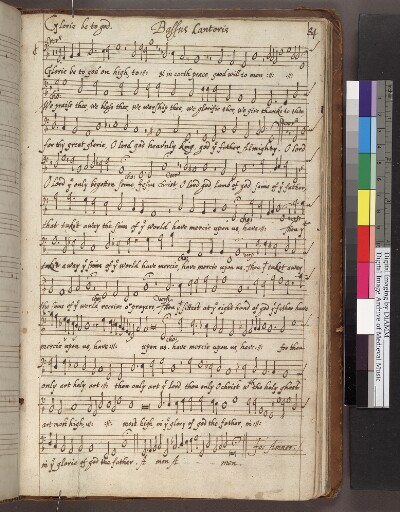 Glorie be to god. Bassus Cantoris 34
Glorie be to god on high, to :||: & in earth peace, good will to men :||: :||:
We praise thee, we bless thee, we worship thee, we glorifie thee, we give thanks to thee
for thy great glorie, O lord god heavnly king, god yᵉ father Almighty. O lord
O lord yᵉ only begotten sonne Jesu christ, O lord god Lamb of god sonne of yᵉ father,
that takest away the sinns of yᵉ world have mercie upon us, have :||: thou yᵗ
takest away yᵉ sinns of yᵉ world have mercie, have mercie upon us. thou yᵗ takest away
the sinns of yᵉ world receive oʳ prayers thou yᵗ sittest at yᵉ right hand of god yᵉ father have
mercie upon us, have :||: upon us. have mercie upon us, have :||: for thou
only art holy, art :||: thou only art yᵉ lord thou only O christ wᵗʰ the holy ghost
art most high, :||: :||: most high in yᵉ glory of god the father, in :||:
in yᵉ glorie of god the father. A men A men.
Digital Imaging by DIAMM
Digital Image Archive of Medieval Music